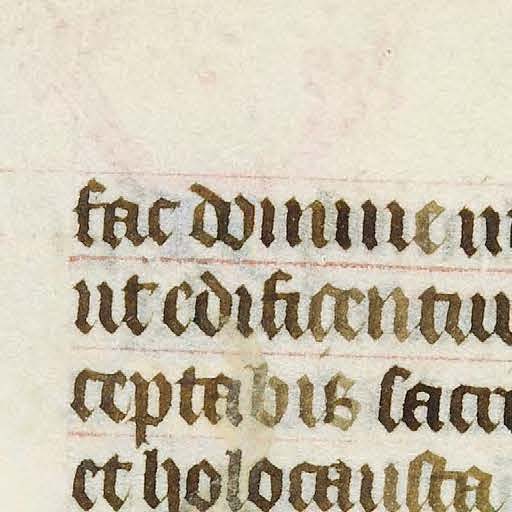 fac domine in
ut edificentu
ceptabis sacri
et holocausta